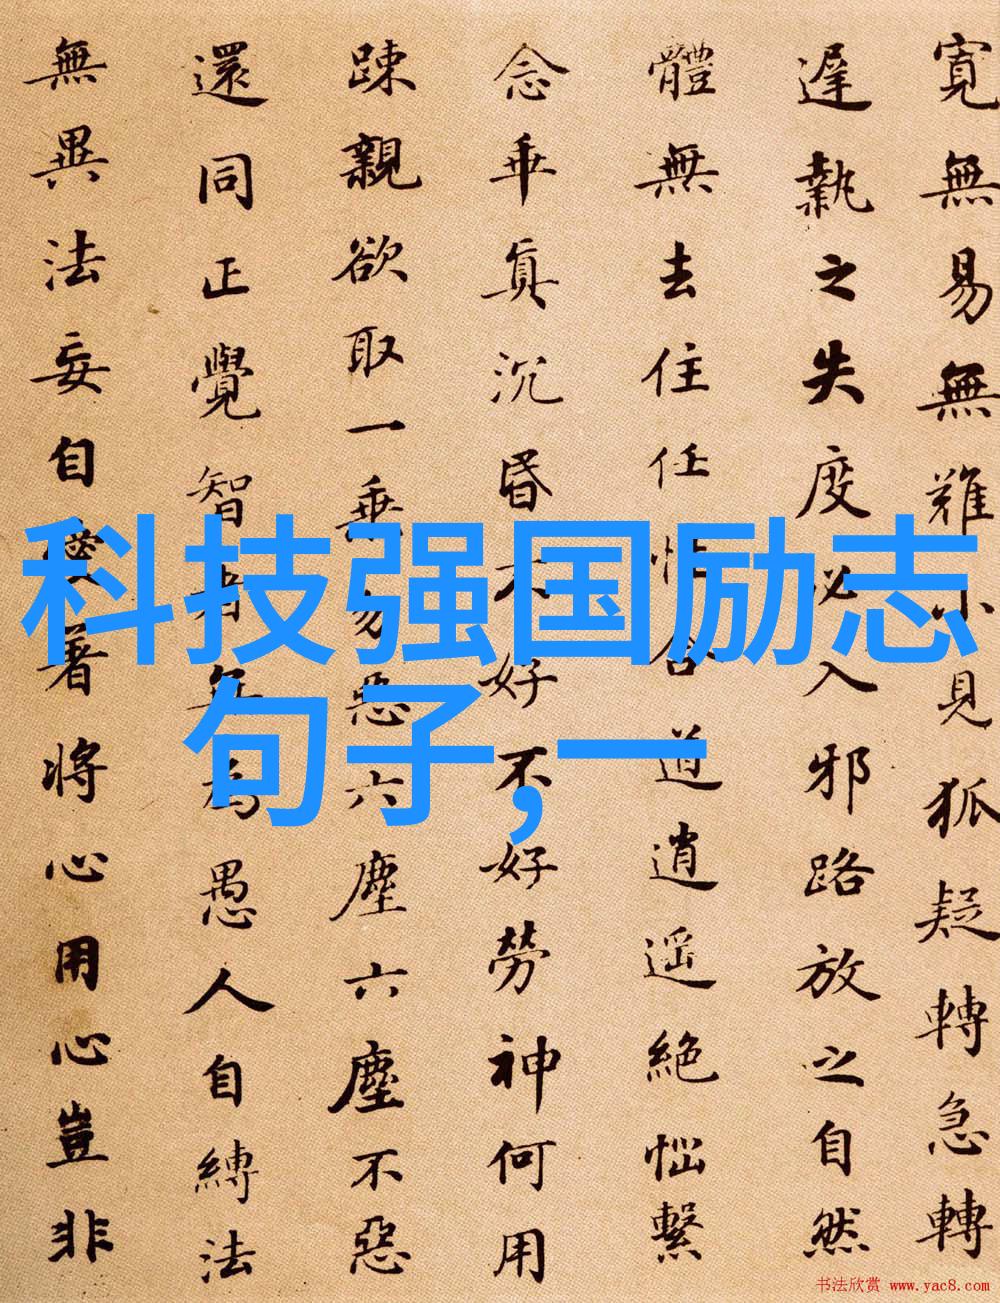 寬無易無難小見狐疑轉急轉
遲執之失度必入邪路放之自然
體無去住任性合道逍遥絶惱繫
念乖真沉昏不好不好勞神何用
踈親欲取一乘勿惡六塵六塵不惡
還同正覺智者無為愚人自縛法
無異法妄自愛著將心用心豈非
科技强国励志
句子,一
书法欣赏 www.yac8.com